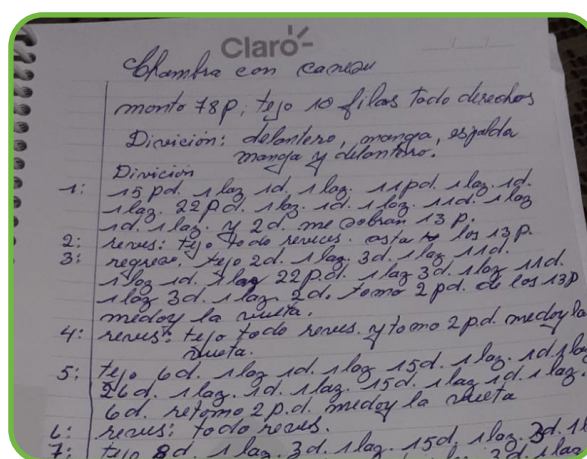 Claro-
Chambra con canezu
monto 78p; tejo 10 filas todo derechos
Divición: delantero, manga, espalda
manga y delantero.
Divición
1: 15 pd. 1 laz 1d. 1 laz. 11pd. 1 laz. 1d.
1 laz. 22 p.d. 1 laz. 1d. 1 laz. 11d. 1 laz
1d. 1 laz. y 2d. me sobran 13 p.
2: reves: tejo todo reveces. asta los 13 p.
3: regreso. tejo 2d. 1 laz. 3d. 1 laz 11d.
1 laz 1d. 1 laz 22 p.d. 1 laz 3d. 1 laz 11d.
1 laz 3d. 1 laz. 2d. tomo 2 pd. de los 13p
medoy la vuelta.
4: reves: tejo todo reves. y tomo 2 p.d. medoy la
vuelta.
5: tejo 6d. 1 laz 1d. 1 laz 15d. 1 laz. 1d. 1 laz
26d. 1 laz. 1d. 1 laz. 15d. 1 laz 1d. 1 laz.
6d. retomo 2 p.d. medoy la vuelta
6: reves: todo reves.
7: tejo 8d. 1 laz. 3d. 1 laz. 15d. 1 laz. 3d. 1l
3d. 1 laz